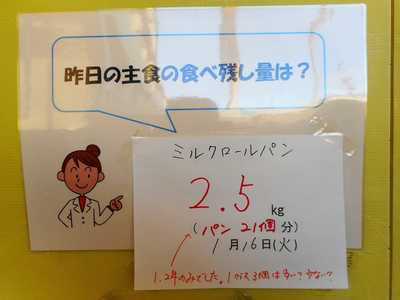 昨日の主食の食べ残し量は？
ミルクロールパン
2.5 kg
(パン 21個 分)
1月16日(火)
1.2年のみでした。1クラス3個は多い？少ない？